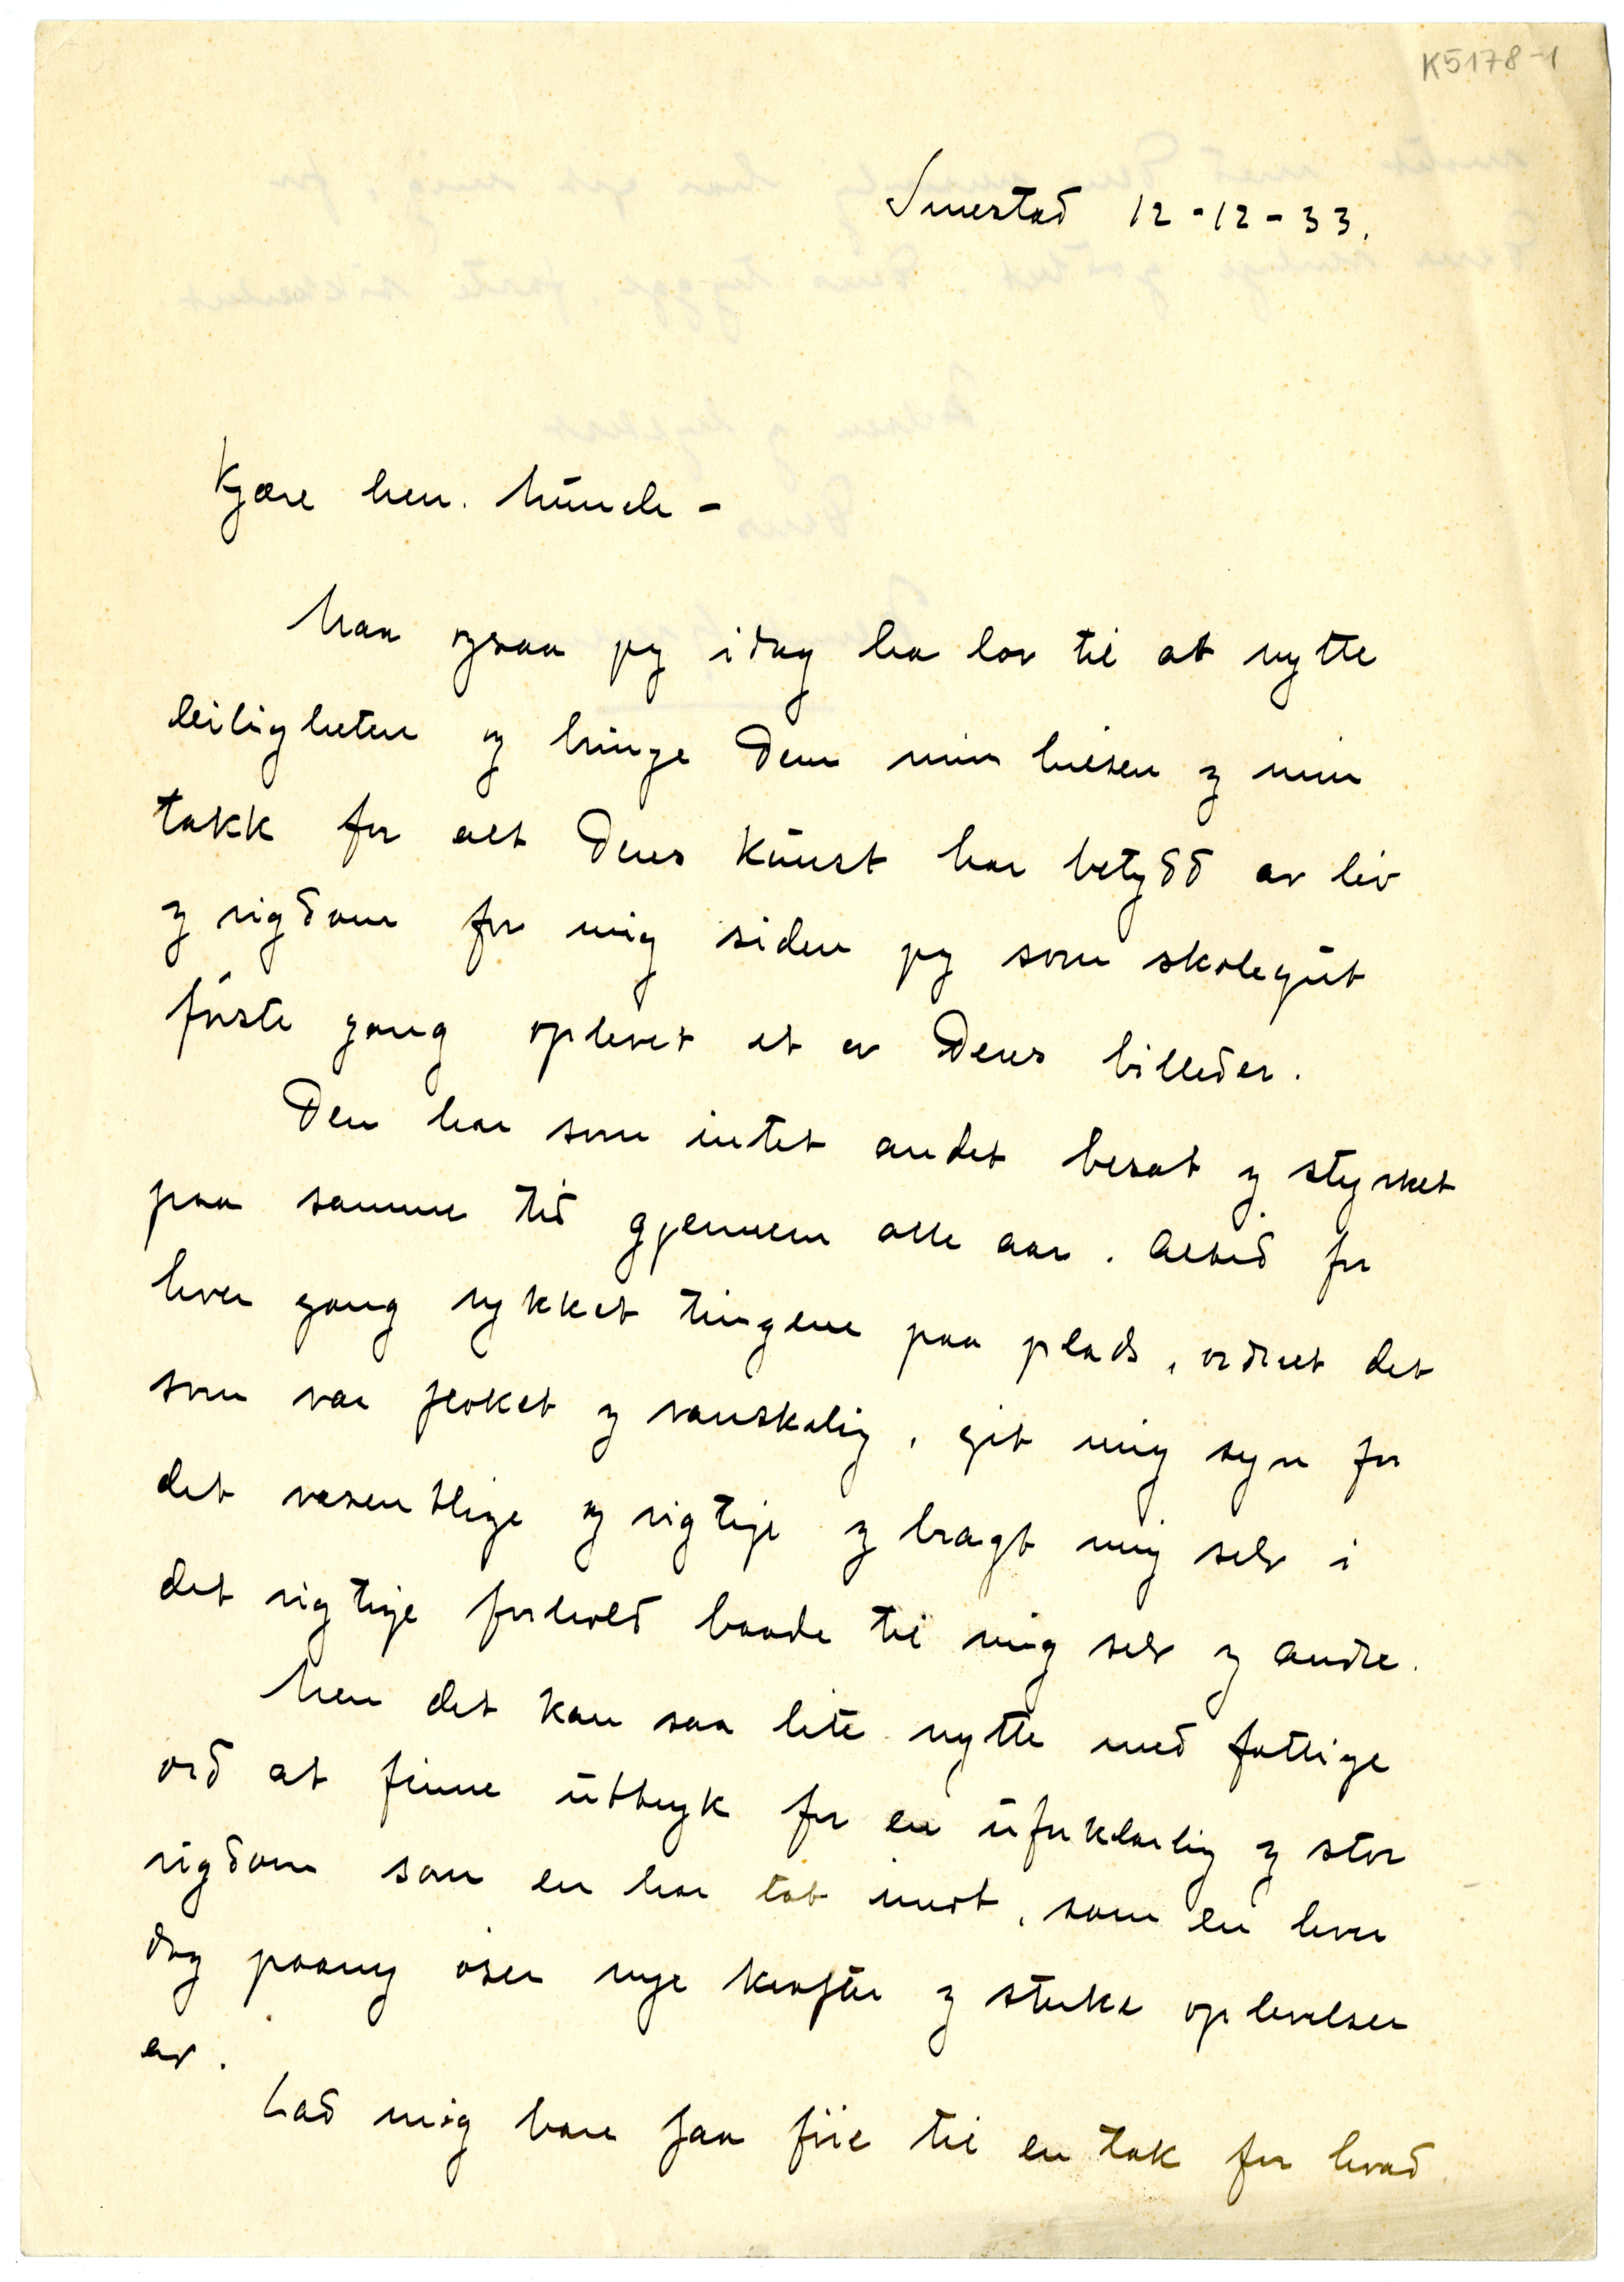 K5178-1
Smestad 12-12-33.
Kjære herr. Munch -
Maa ogsaa jeg idag ha lov til at nytte
leiligheten og bringe Dem min hilsen og min
takk for alt Deres kunst har betydd av liv
og rigdom for mig siden jeg som skolegut
første gang oplevet et av Deres billeder.
Den har som intet andet besat og styrket
paa samme tid gjennem alle aar. Altid for
hver gang rykket tingene paa plads, ordnet det
som var floket og vanskelig, git mig syn for
det væsentlige og rigtige og bragt mig selv i
det rigtige forhold baade til mig selv og andre.
Men det kan saa lite nytte med fattige
ord at finne uttryk for en uforklarlig og stor
rigdom som en har tat imot, som en hver
dag paany øser nye kræfter og sterke oplevelser
av.
Lad mig bare faa føie til en tak for hvad